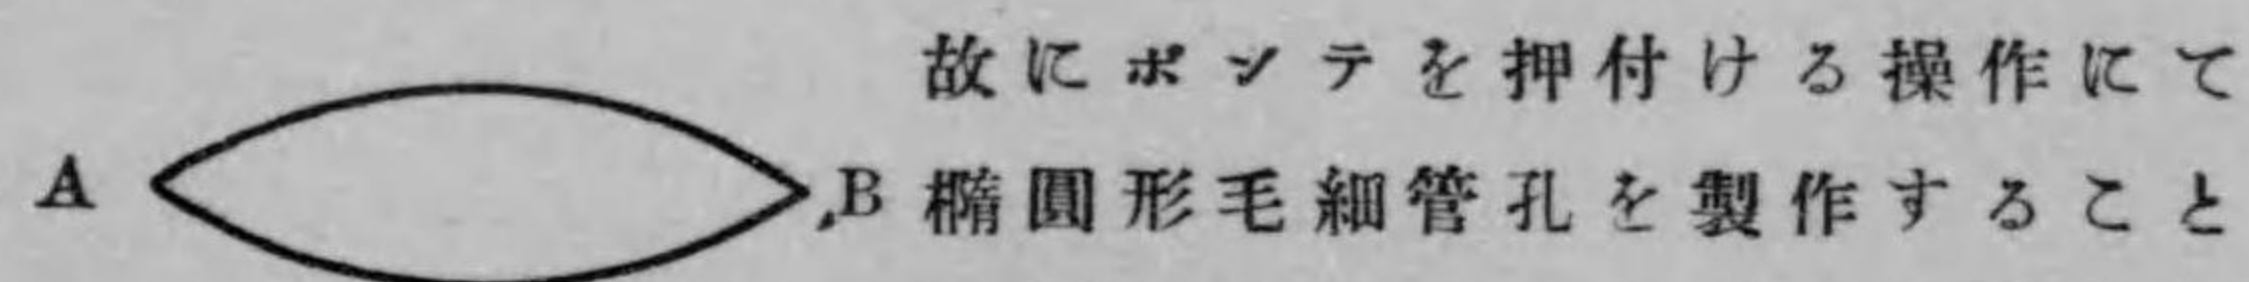 故にポンテを押付ける操作にて
A B 楕圓形毛細管孔を製作すること